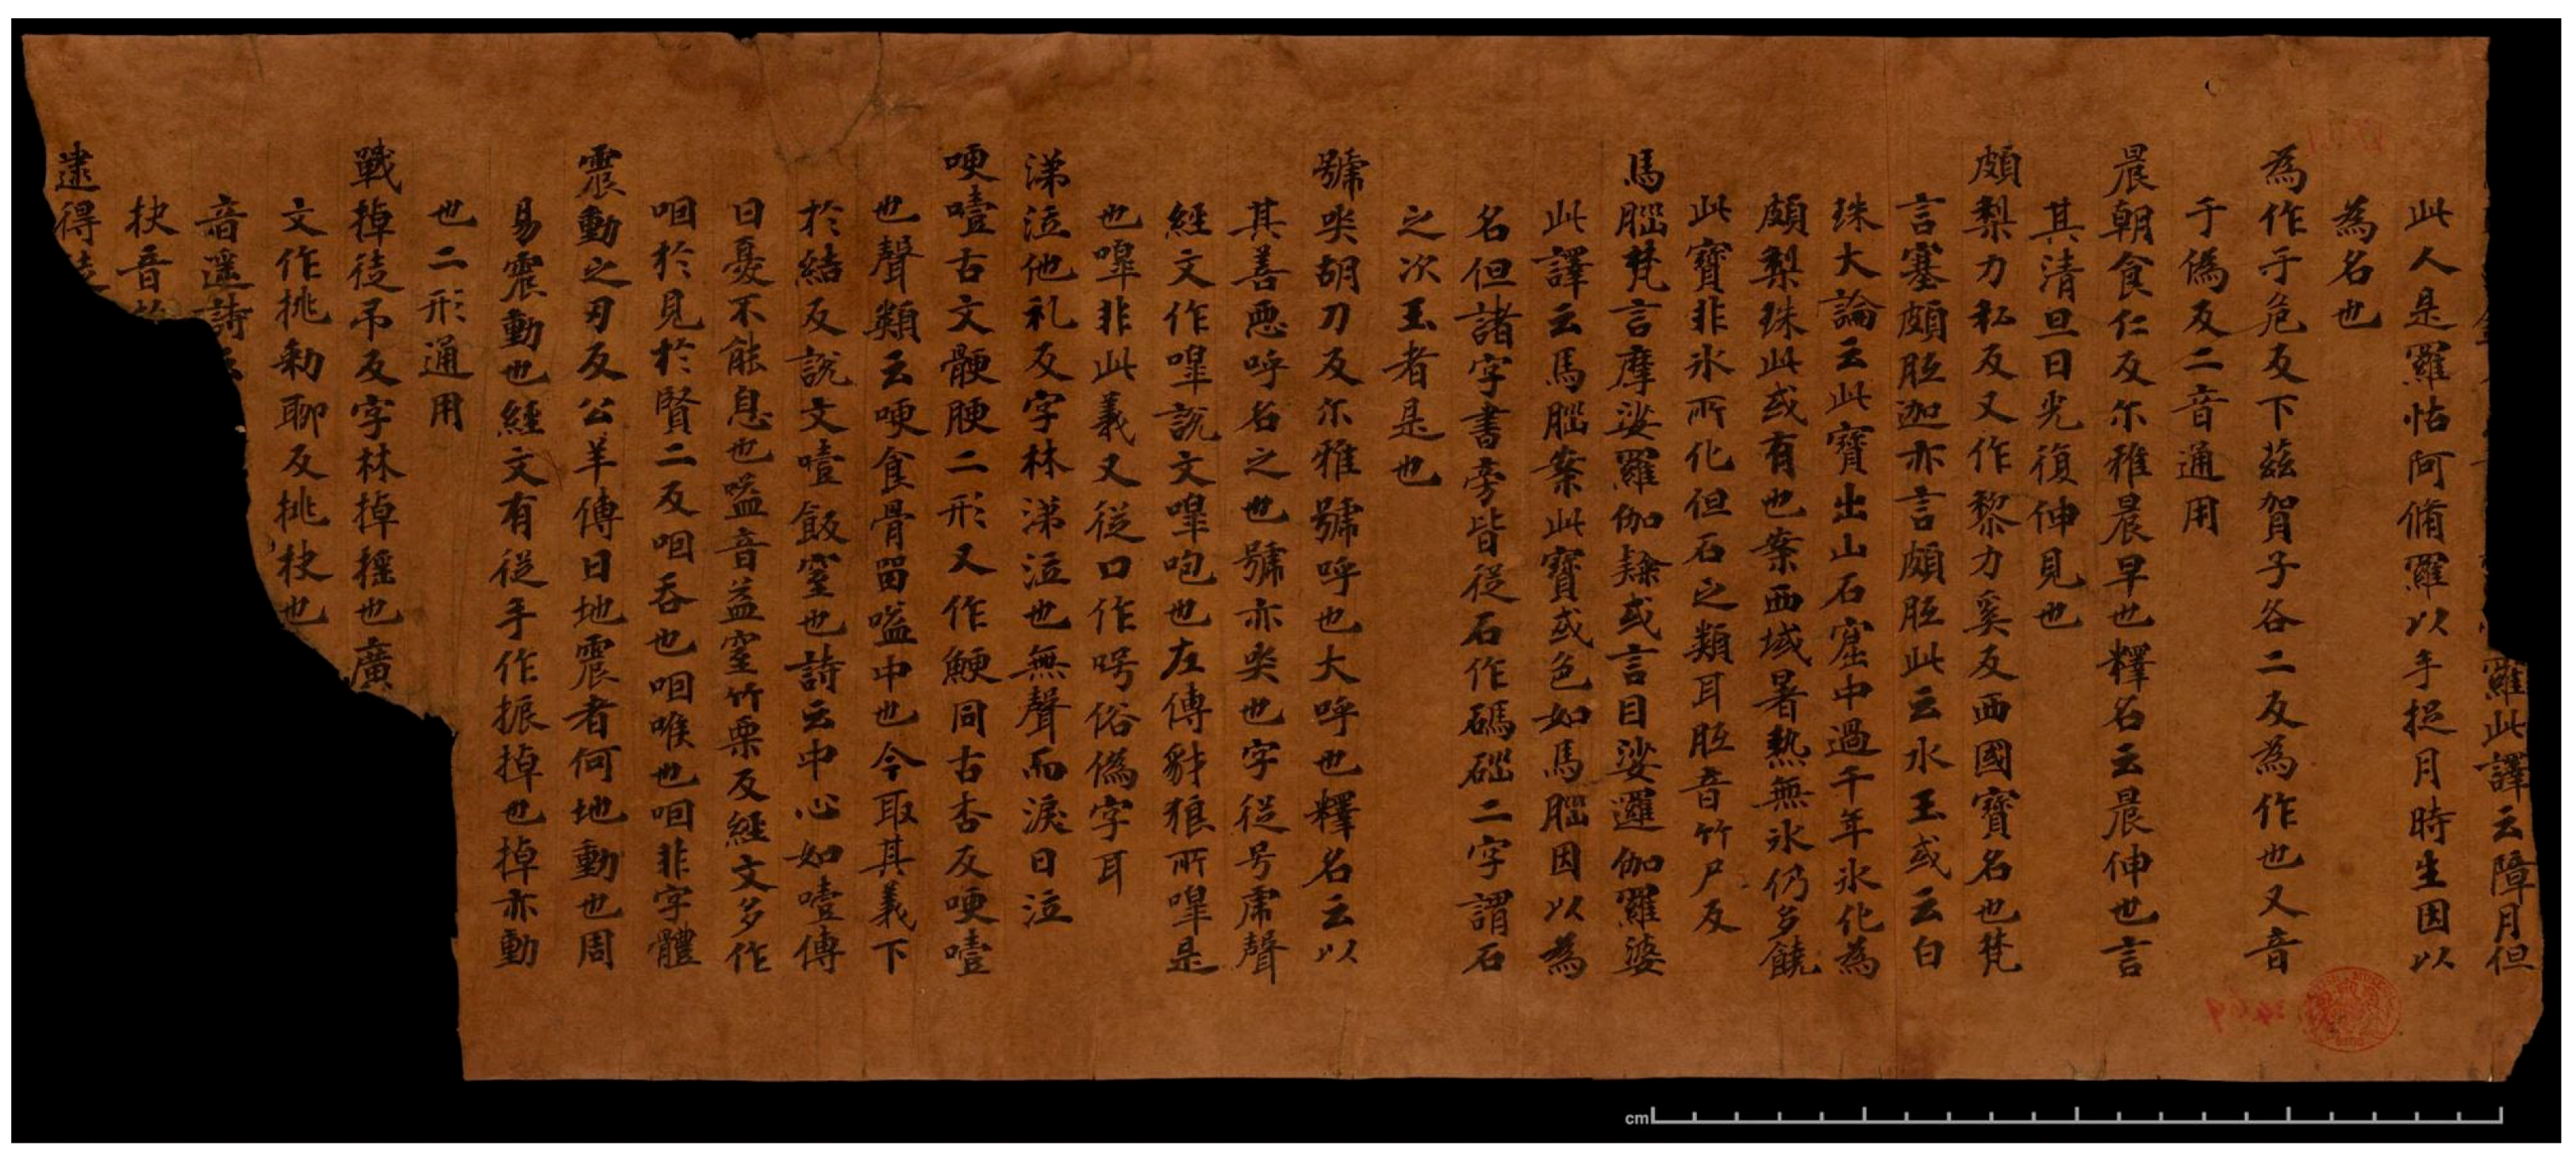 羅此譯云障月但
此人是羅怙阿脩羅以手捉月時生因以
為名也
為作于危反下茲賀子各二反為作也又音
于偽反二音通用
晨朝食仁反尔雅晨早也釋名云晨伸也言
其清旦日光復伸見也
頗梨力私反又作黎力奚反西國寶名也梵
言塞頗胝迦亦言頗胝此云水玉或云白
珠大論云此寶出山石窟中過千年氷化為
頗梨珠此或有也案西域暑熱無氷仍多饒
此寶非氷所化但石之類耳胝音竹尸反
馬腦梵言摩娑羅伽隸或言目娑邏伽羅婆
此譯云馬腦案此寶或色如馬腦因以為
名但諸字書旁皆從石作碼碯二字謂石
之次玉者是也
號哭胡刀反尔雅號呼也大呼也釋名云以
其善惡呼名之也號亦哭也字從号虎聲
經文作嘷說文嘷咆也左傳豺狼所嘷是
也嘷非此義又從口作呺俗偽字耳
涕泣他礼反字林涕泣也無聲而淚曰泣
哽噎古文骾腰二形又作鯁同古杏反哽噎
也聲類云哽食骨留嗌中也今取其義下
於結反說文噎飯窒也詩云中心如噎傳
曰憂不能息也嗌音益窒竹栗反經文多作
咽於見於賢二反咽吞也咽喉也咽非字體
震動之刃反公羊傳曰地震者何地動也周
易震動也經文有從手作振掉也掉亦動
也二形通用
戰掉徒吊反字林掉揺也廣
文作挑勑聊反挑抉也
音遥詩云
抉音
逮得